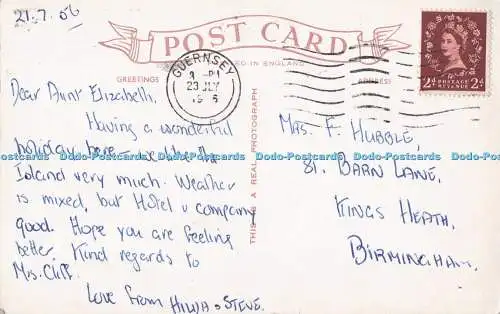 21.7.56
POST CARD
GREETINGS
ED IN ENGLAND
ADDRESS
GUERNSEY
23 JLY
POSTAGE
REVENUE
2d 2d
THIS IS A REAL PHOTOGRAPH
Dear Aunt Elizabeth,
Having a wonderful
holiday here – the
Island very much. Weather
is mixed, but Hotel & company
good. Hope you are feeling
better. Kind regards to
Mrs. Cliff.
Love from STEVE.
MRS. F. HUBBLE,
81. BARN LANE,
KINGS HEATH,
BIRMINGHAM.
Dodo-Postcards Dodo-Postcards Dodo-Postcards Dodo-Postcards Dodo-Postcards